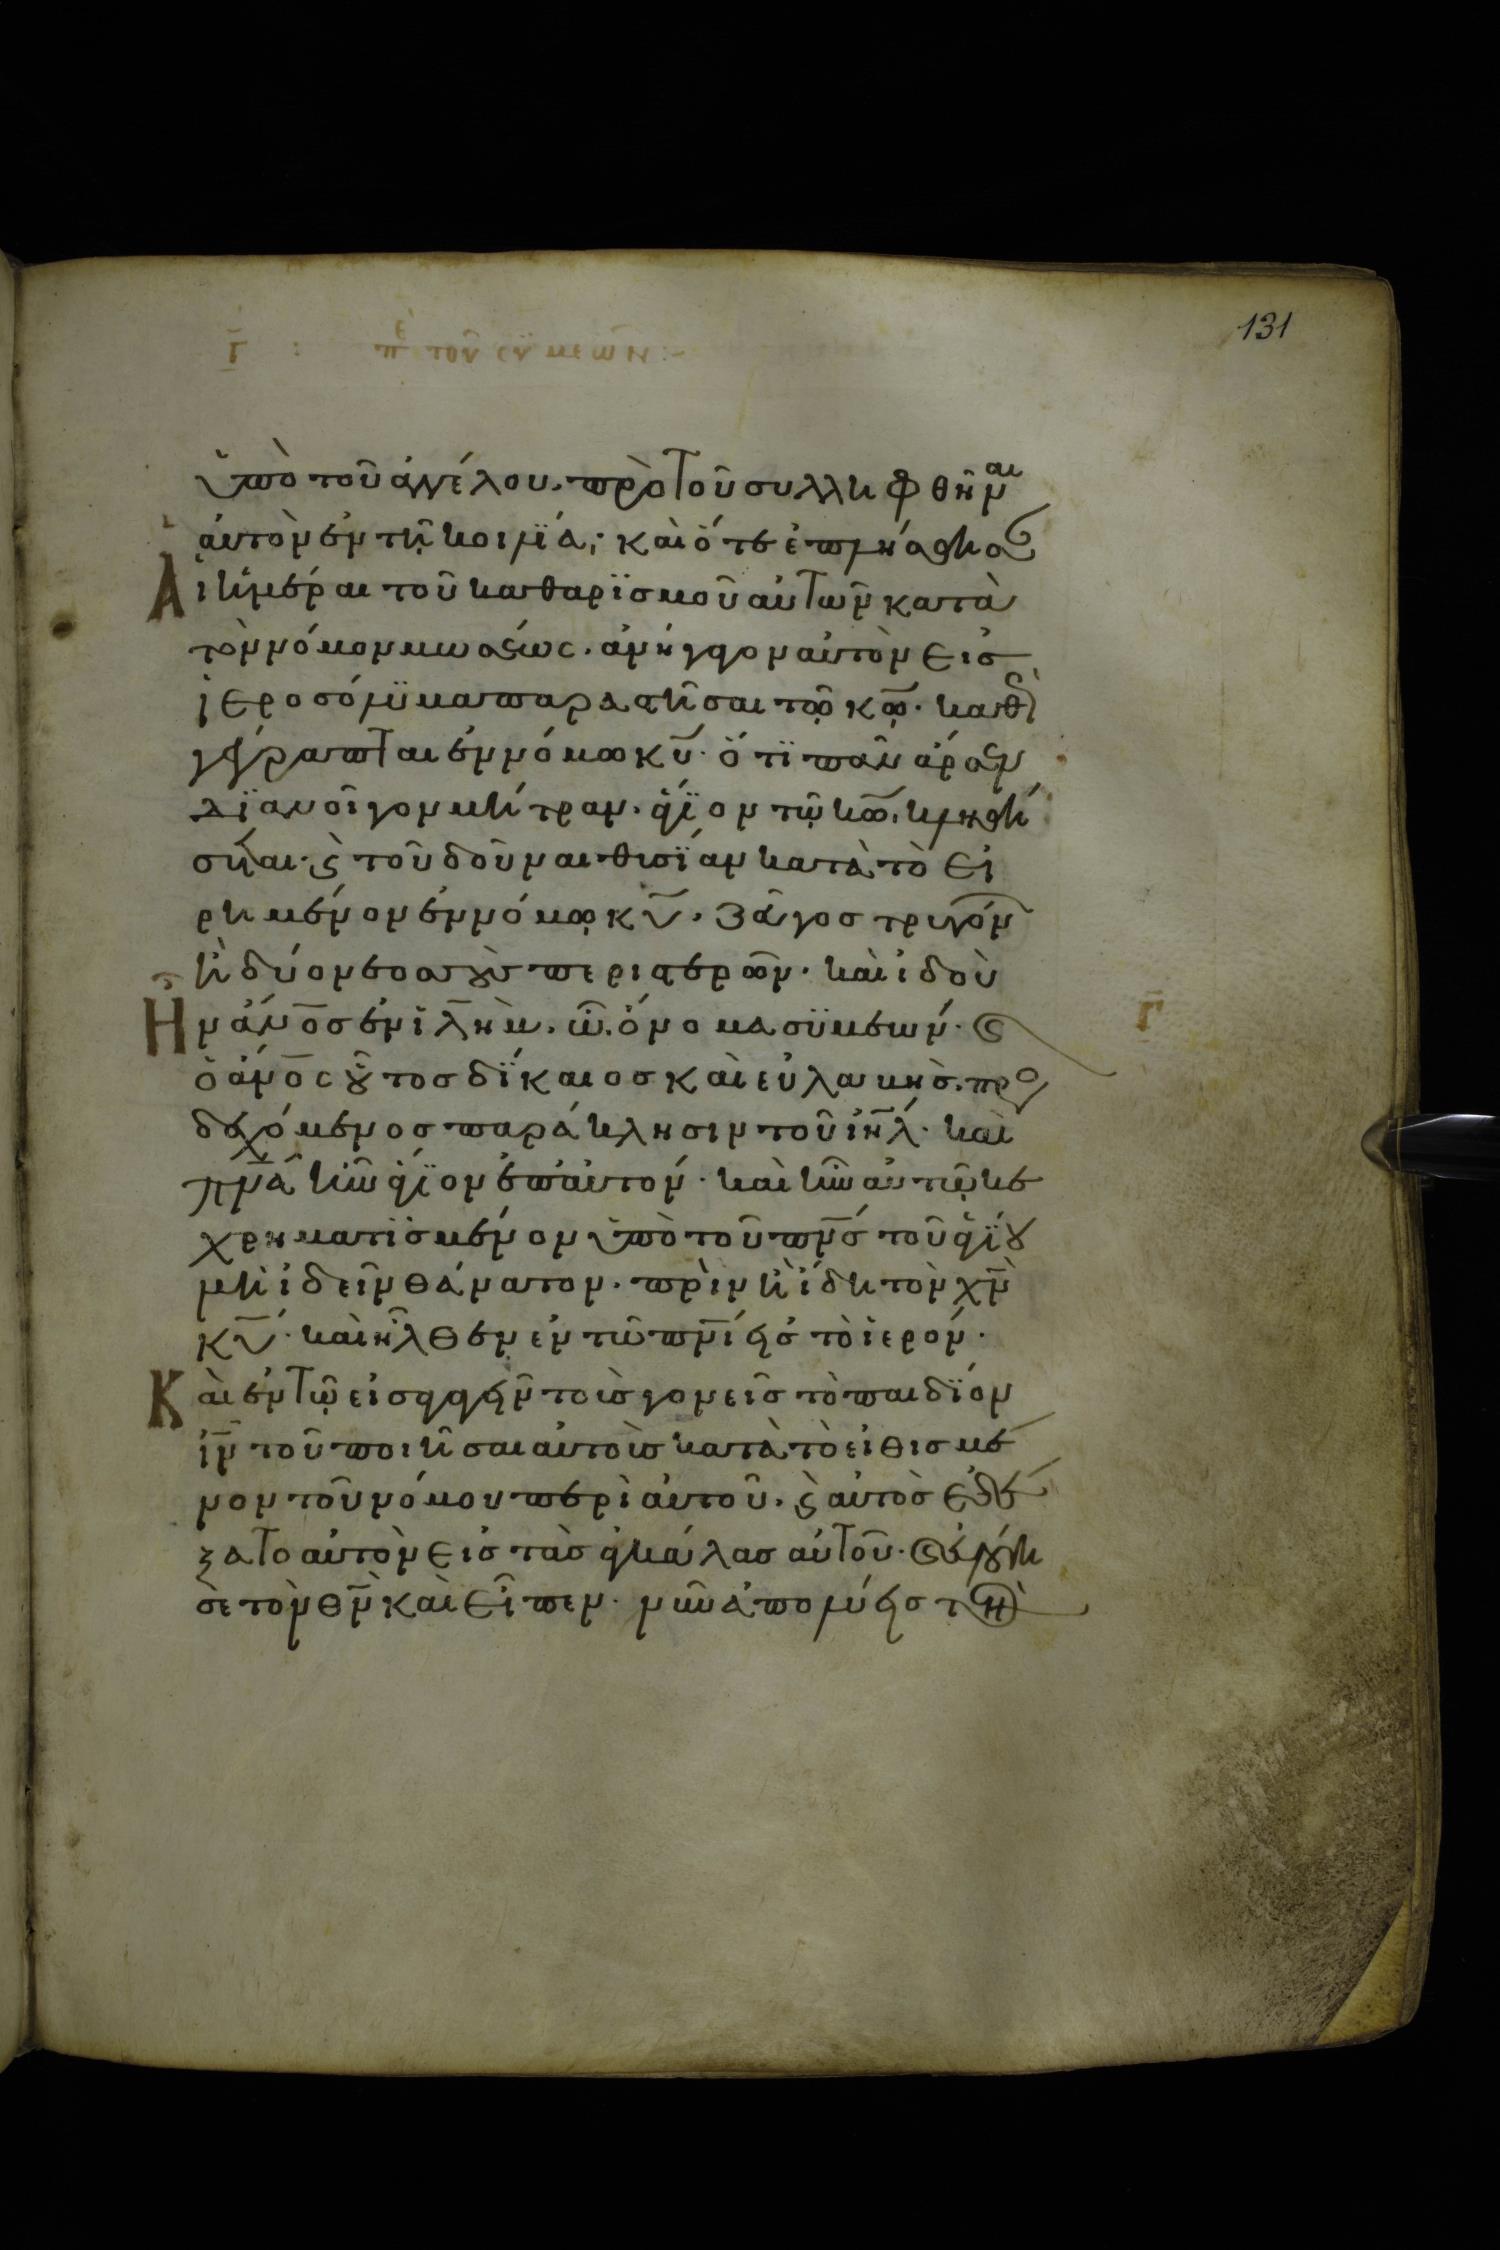 131
Γ̄ : πὲ τοῦ συμεῶν:~
ὑπὸ τοῦ ἀγγέλου. πρὸ τοῦ συλληφθῆναι
αὐτὸν ἐν τῆ κοιλία· καὶ ὅτε ἐπλήσθησα
ι ἡμέραι τοῦ καθαρϊσμοῦ αὐτῶν κατὰ
τὸν νόμον μωσέως. ἀνήγαγον αὐτὸν εἰς
ϊεροσόλυμα παραστῆσαι τῷ κῷ. καθὼ
γέγραπται ἐν νόμω κῡ. ὅτϊ πᾶν ἄρσεν
δϊανοῖγον μήτραν. ἅγϊον τῷ κῷ. κληθή
σεται. ϛ τοῦ δοῦναι θυσϊαν κατὰ τὸ εἰ
ρημένον ἐν νόμῳ κῡ. ζεῦγος τρυγόν
ἢ δύο νεοσσοὺς περιστερῶν. καὶ ἰδοὺ
Ἦν ἄνο̄ς ἐν ῑλὴμ. ὧ ὄνομα συμεών. ϛ
ὁ ἄνο̄ς οὗτος δϊκαιος καὶ εὐλαβὴς. προς
δεχόμενος παράκλησιν τοῦ ιη̄λ. καὶ
πνᾱ ἦν ἅγϊον ἐπ' αὐτόν. καὶ ἦν αὐτῷ κε
χρηματϊσμένον ὑπὸ τοῦ πνσ̄ τοῦ ἁγϊου
μὴ ἰδεῖν θάνατον. πρὶν ἢ ἴδη τὸν χν̄
κῡ. καὶ ἦλθεν ἐν τῶ πνῑ εἰς τὸ ἱερόν.
Καὶ ἐν τῷ εἰσαγαγεῖν τοὺς γονεῖς τὸ παιδϊον
ιν̄ τοῦ ποιῆσαι αὐτοὺς κατὰ τὸ εἰθισμέ
νον τοῦ νόμου περὶ αὐτοῦ. ϛ αὐτὸς ἐδέ
ξατο αὐτὸν εἰς τὰς ἀγκάλας αὐτοῦ. ϛ εὐλόγη
σε τὸν θν̄ καὶ εἶπεν. νῦν ἀπολύεις τὸν
Γ̄